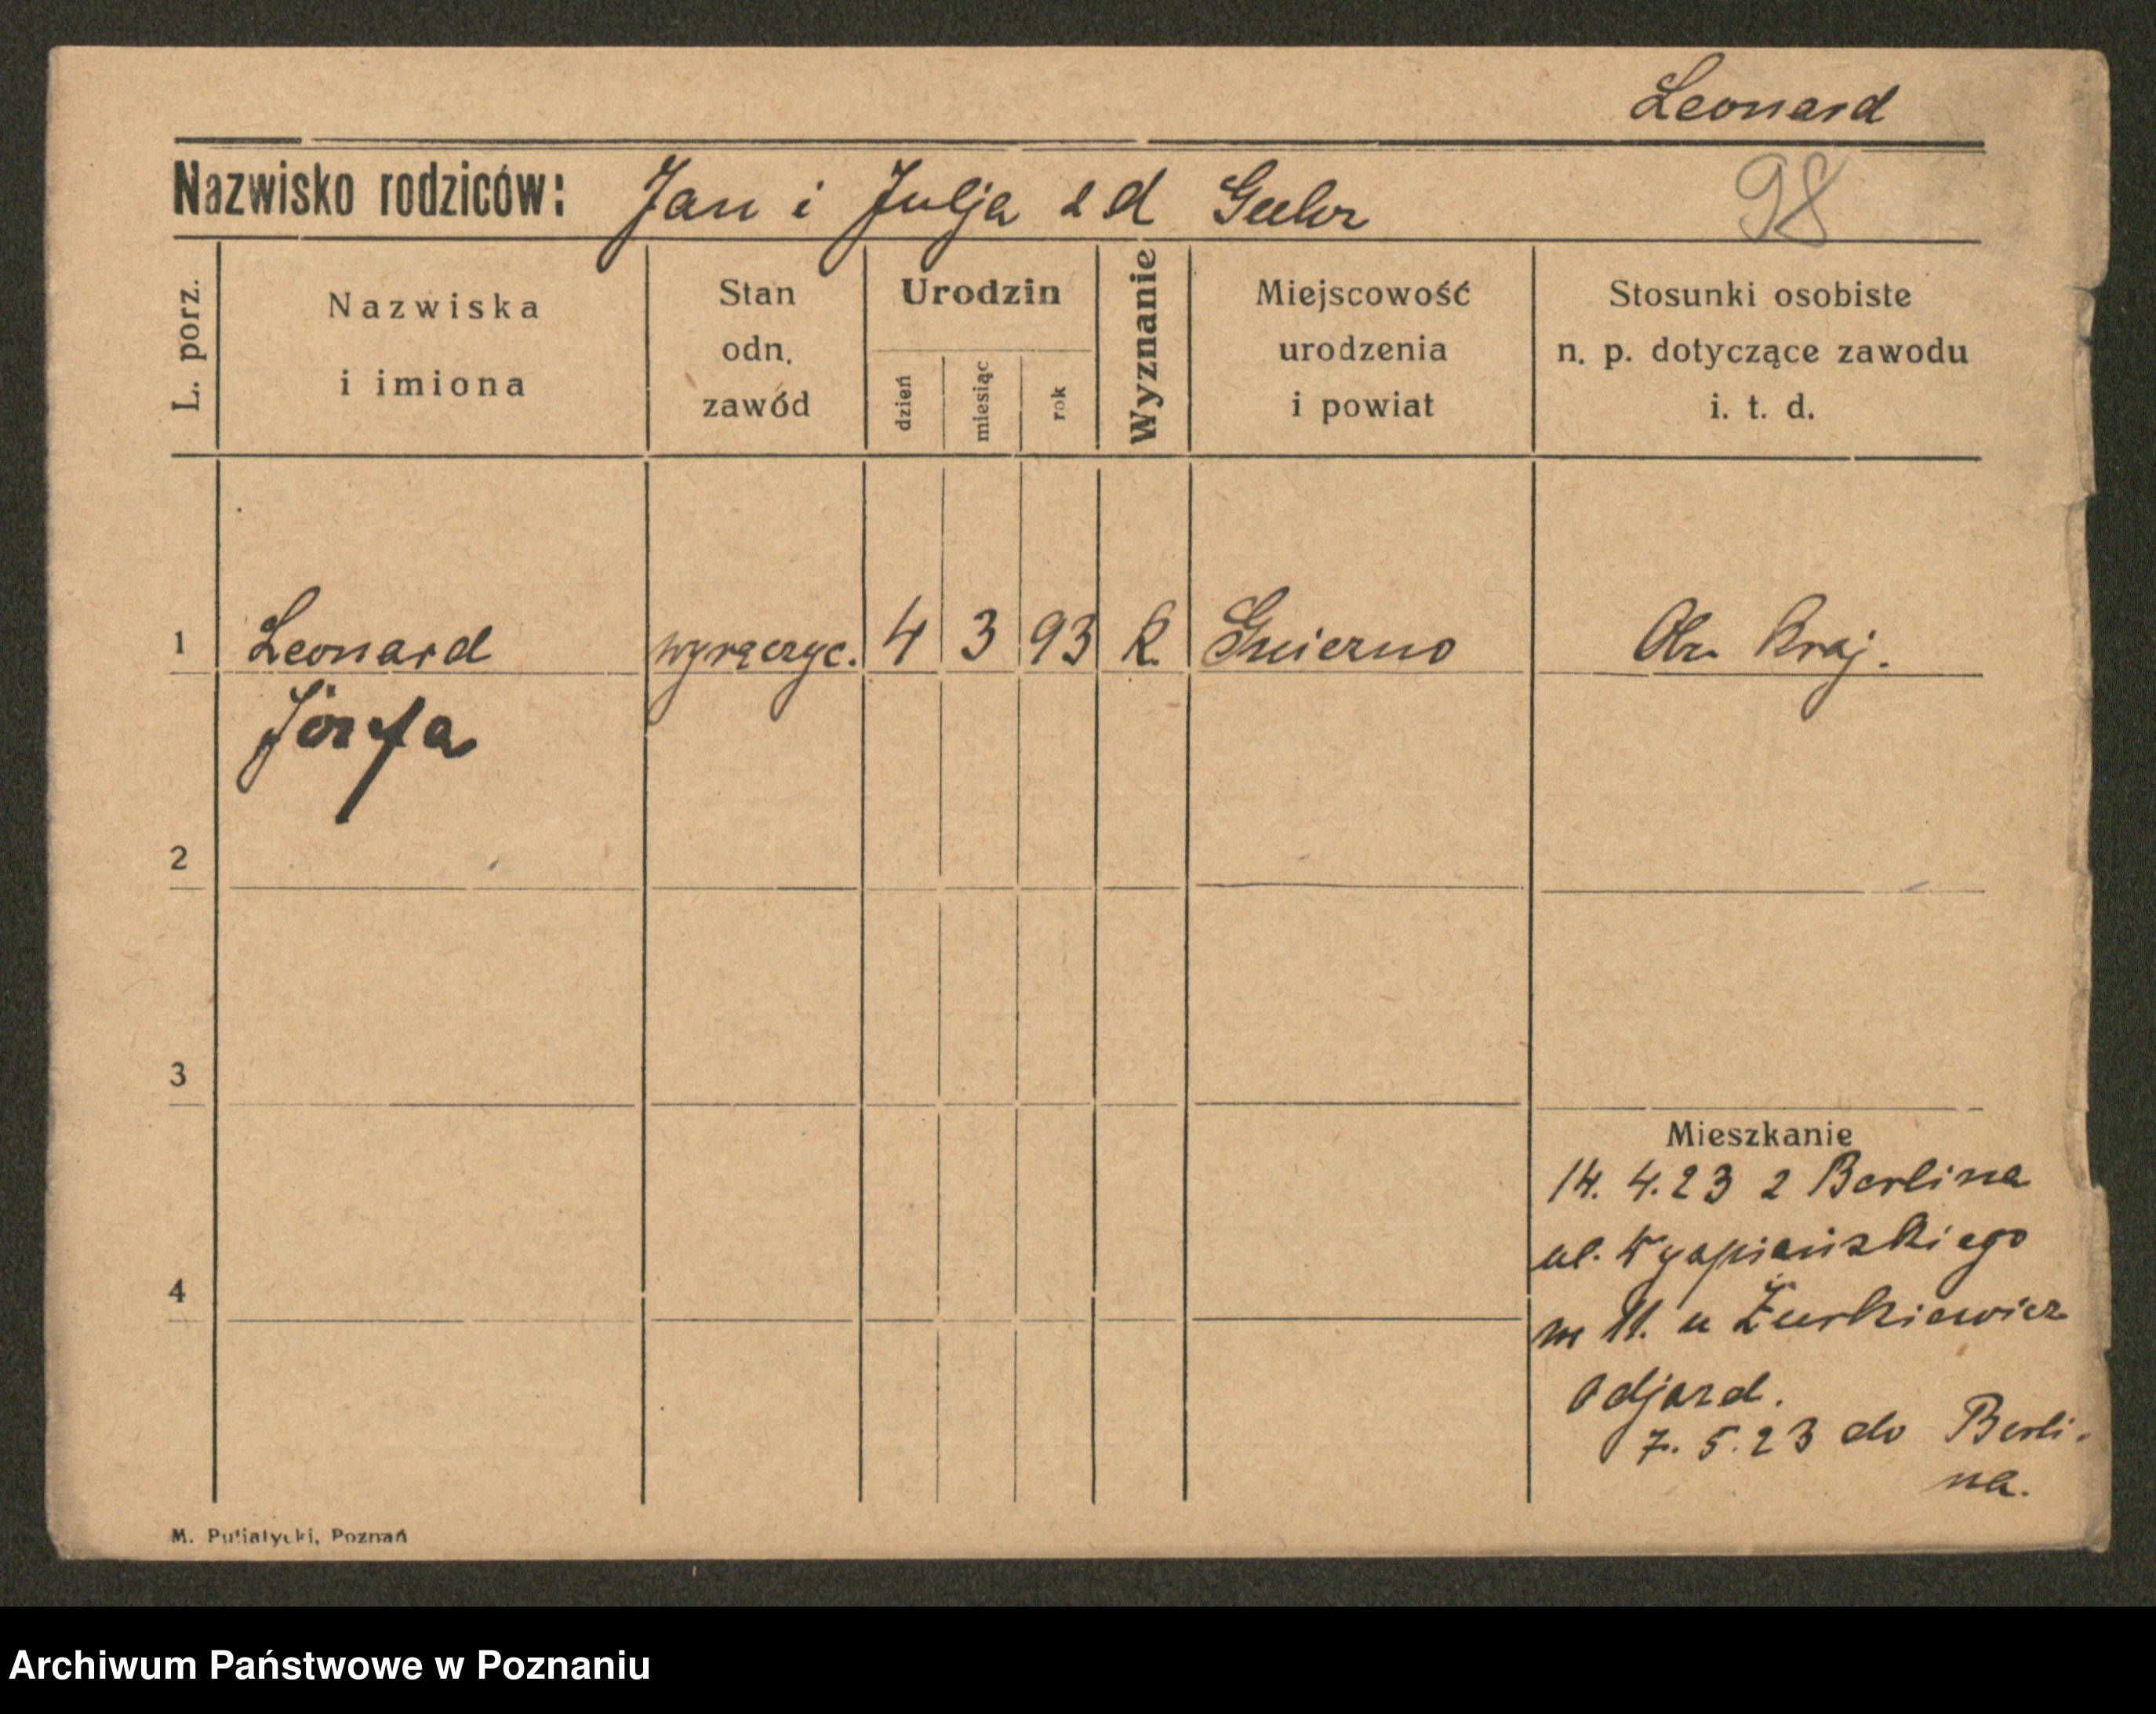 Leonard
Nazwisko rodziców: Jan i Julja z d
98
L. porz.
Nazwiska
i imiona
Stan
odn.
zawód
Urodzin
dzień
miesiąc
rok
Wyznanie
Miejscowość
urodzenia
i powiat
Stosunki osobiste
n. p. dotyczące zawodu
i. t. d.
1 Leonard wyręczyc. 4 3 93 K. Gniezno Ob. Kraj.
Józefa
2
3
Mieszkanie
14. 4. 23 z Berlina
ul. Wyspiańskiego
11. u Żurkiewicz
4
Odjazd.
7. 5. 23 do Berli-
na.
M. Putiatycki, Poznań
Archiwum Państwowe w Poznaniu